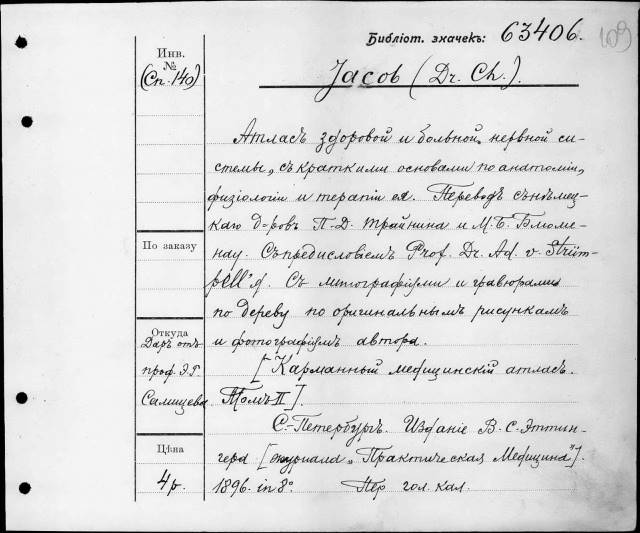 Библіот. значекъ: 63406. 109
Инв. №
(Сп. 140)
Jacob (Dr. Ch.).
Атласъ здоровой и больной нервной си-
стемы, съ краткими основами по анатоміи,
физіологіи и терапіи ея. Переводъ съ нѣмец-
каго д-ровъ П. Д. Трайнина и М. Б. Блюме-
нау. Съ предисловіемъ Prof. Dr. Ad. v. Strüm-
pell'я. Съ литографіями и гравюрами
по дереву по оригинальнымъ рисункамъ
и фотографіямъ автора.
[Карманный медицинскій атласъ.
Томъ II].
С.-Петербургъ. Изданіе В. С. Эттин-
гера [журнала „Практическая Медицина"].
1896. in 8°. Пер. гол. кал.
По заказу
Откуда
Даръ отъ
проф. Э. Г.
Салищева
Цѣна
4 р.